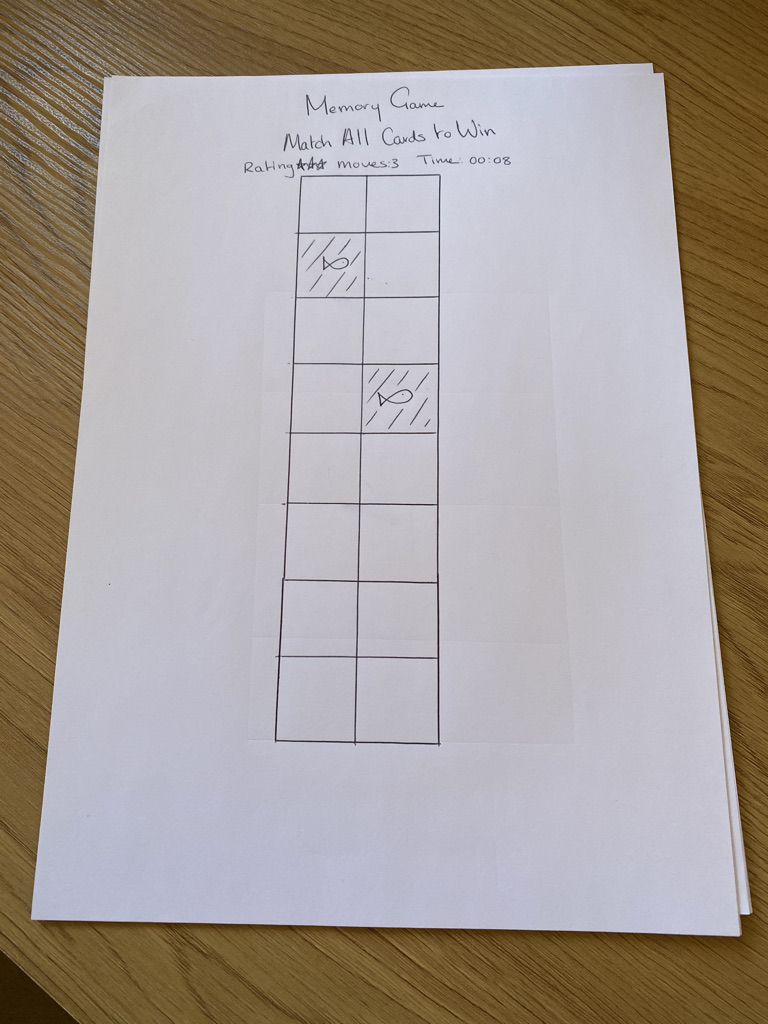 Memory Game
Match All Cards to Win
Rating ★★★ moves:3 Time: 00:08